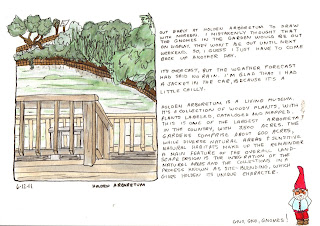 OUT EARLY AT HOLDEN ARBORETUM TO DRAW
WITH MAUREEN. I MISTAKENLY THOUGHT THAT
THE GNOMES IN THE GARDEN WOULD BE OUT
ON DISPLAY. THEY WON'T BE OUT UNTIL NEXT
WEEKEND. SO, I GUESS I JUST HAVE TO COME
BACK UP ANOTHER DAY.
IT'S OVERCAST, BUT THE WEATHER FORECAST
HAD SAID NO RAIN. I'M GLAD THAT I HAD
A JACKET IN THE CAR, BECAUSE IT'S A
LITTLE CHILLY.
HOLDEN ARBORETUM IS A LIVING MUSEUM.
IT'S A COLLECTION OF WOODY PLANTS, WITH
PLANTS LABELED, CATALOGED AND MAPPED.
THIS IS ONE OF THE LARGEST ARBORETA
IN THE COUNTRY, WITH 3500 ACRES. THE
GARDENS COMPRISE ABOUT 600 ACRES,
WHILE DIVERSE NATURAL AREAS & SENSITIVE
NATURAL HABITATS MAKE UP THE REMAINDER
A MAIN FEATURE OF THE OVERALL LAND-
SCAPE DESIGN IS THE INTEGRATION OF THE
NATURAL AREAS AND THE COLLECTIONS IN A
PROCESS KNOWN AS SITE-BLENDING, WHICH
GIVES HOLDEN ITS UNIQUE CHARACTER.
6-12-11
HOLDEN ARBORETUM
GNO, GNO, GNOMES!